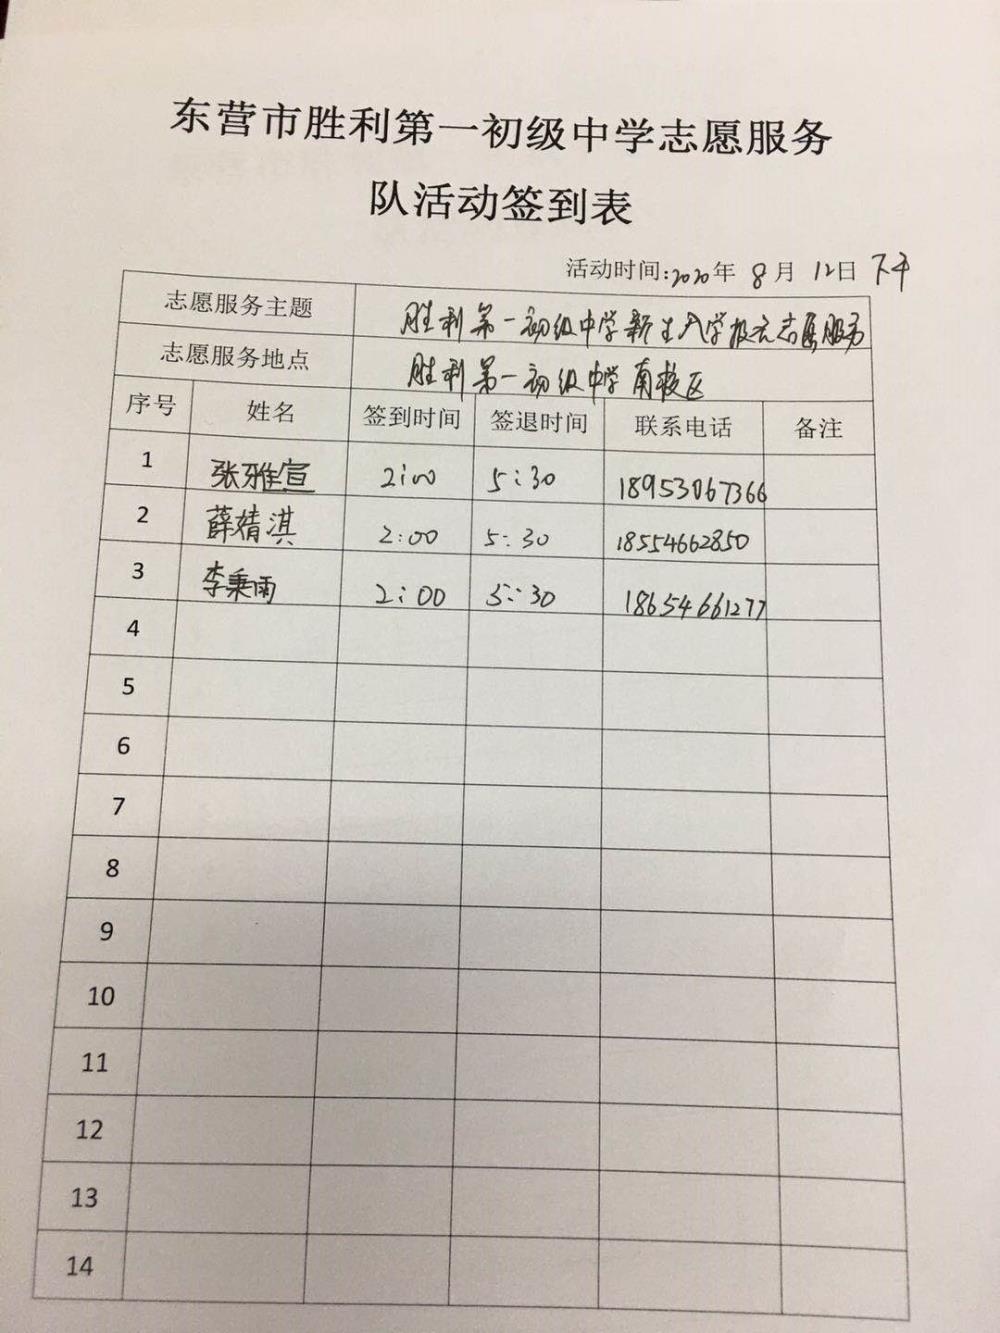 东营市胜利第一初级中学志愿服务
队活动签到表
活动时间:2020年 8月 12日 下午
志愿服务主题 胜利第一初级中学新生入学报元志愿服务
志愿服务地点 胜利第一初级中学南校区
序号 姓名 签到时间 签退时间 联系电话 备注
1 张雅宣 2:00 5:30 18953067366
2 薛婧淇 2:00 5:30 18554662850
3 李秉雨 2:00 5:30 18654661277
4
5
6
7
8
9
10
11
12
13
14